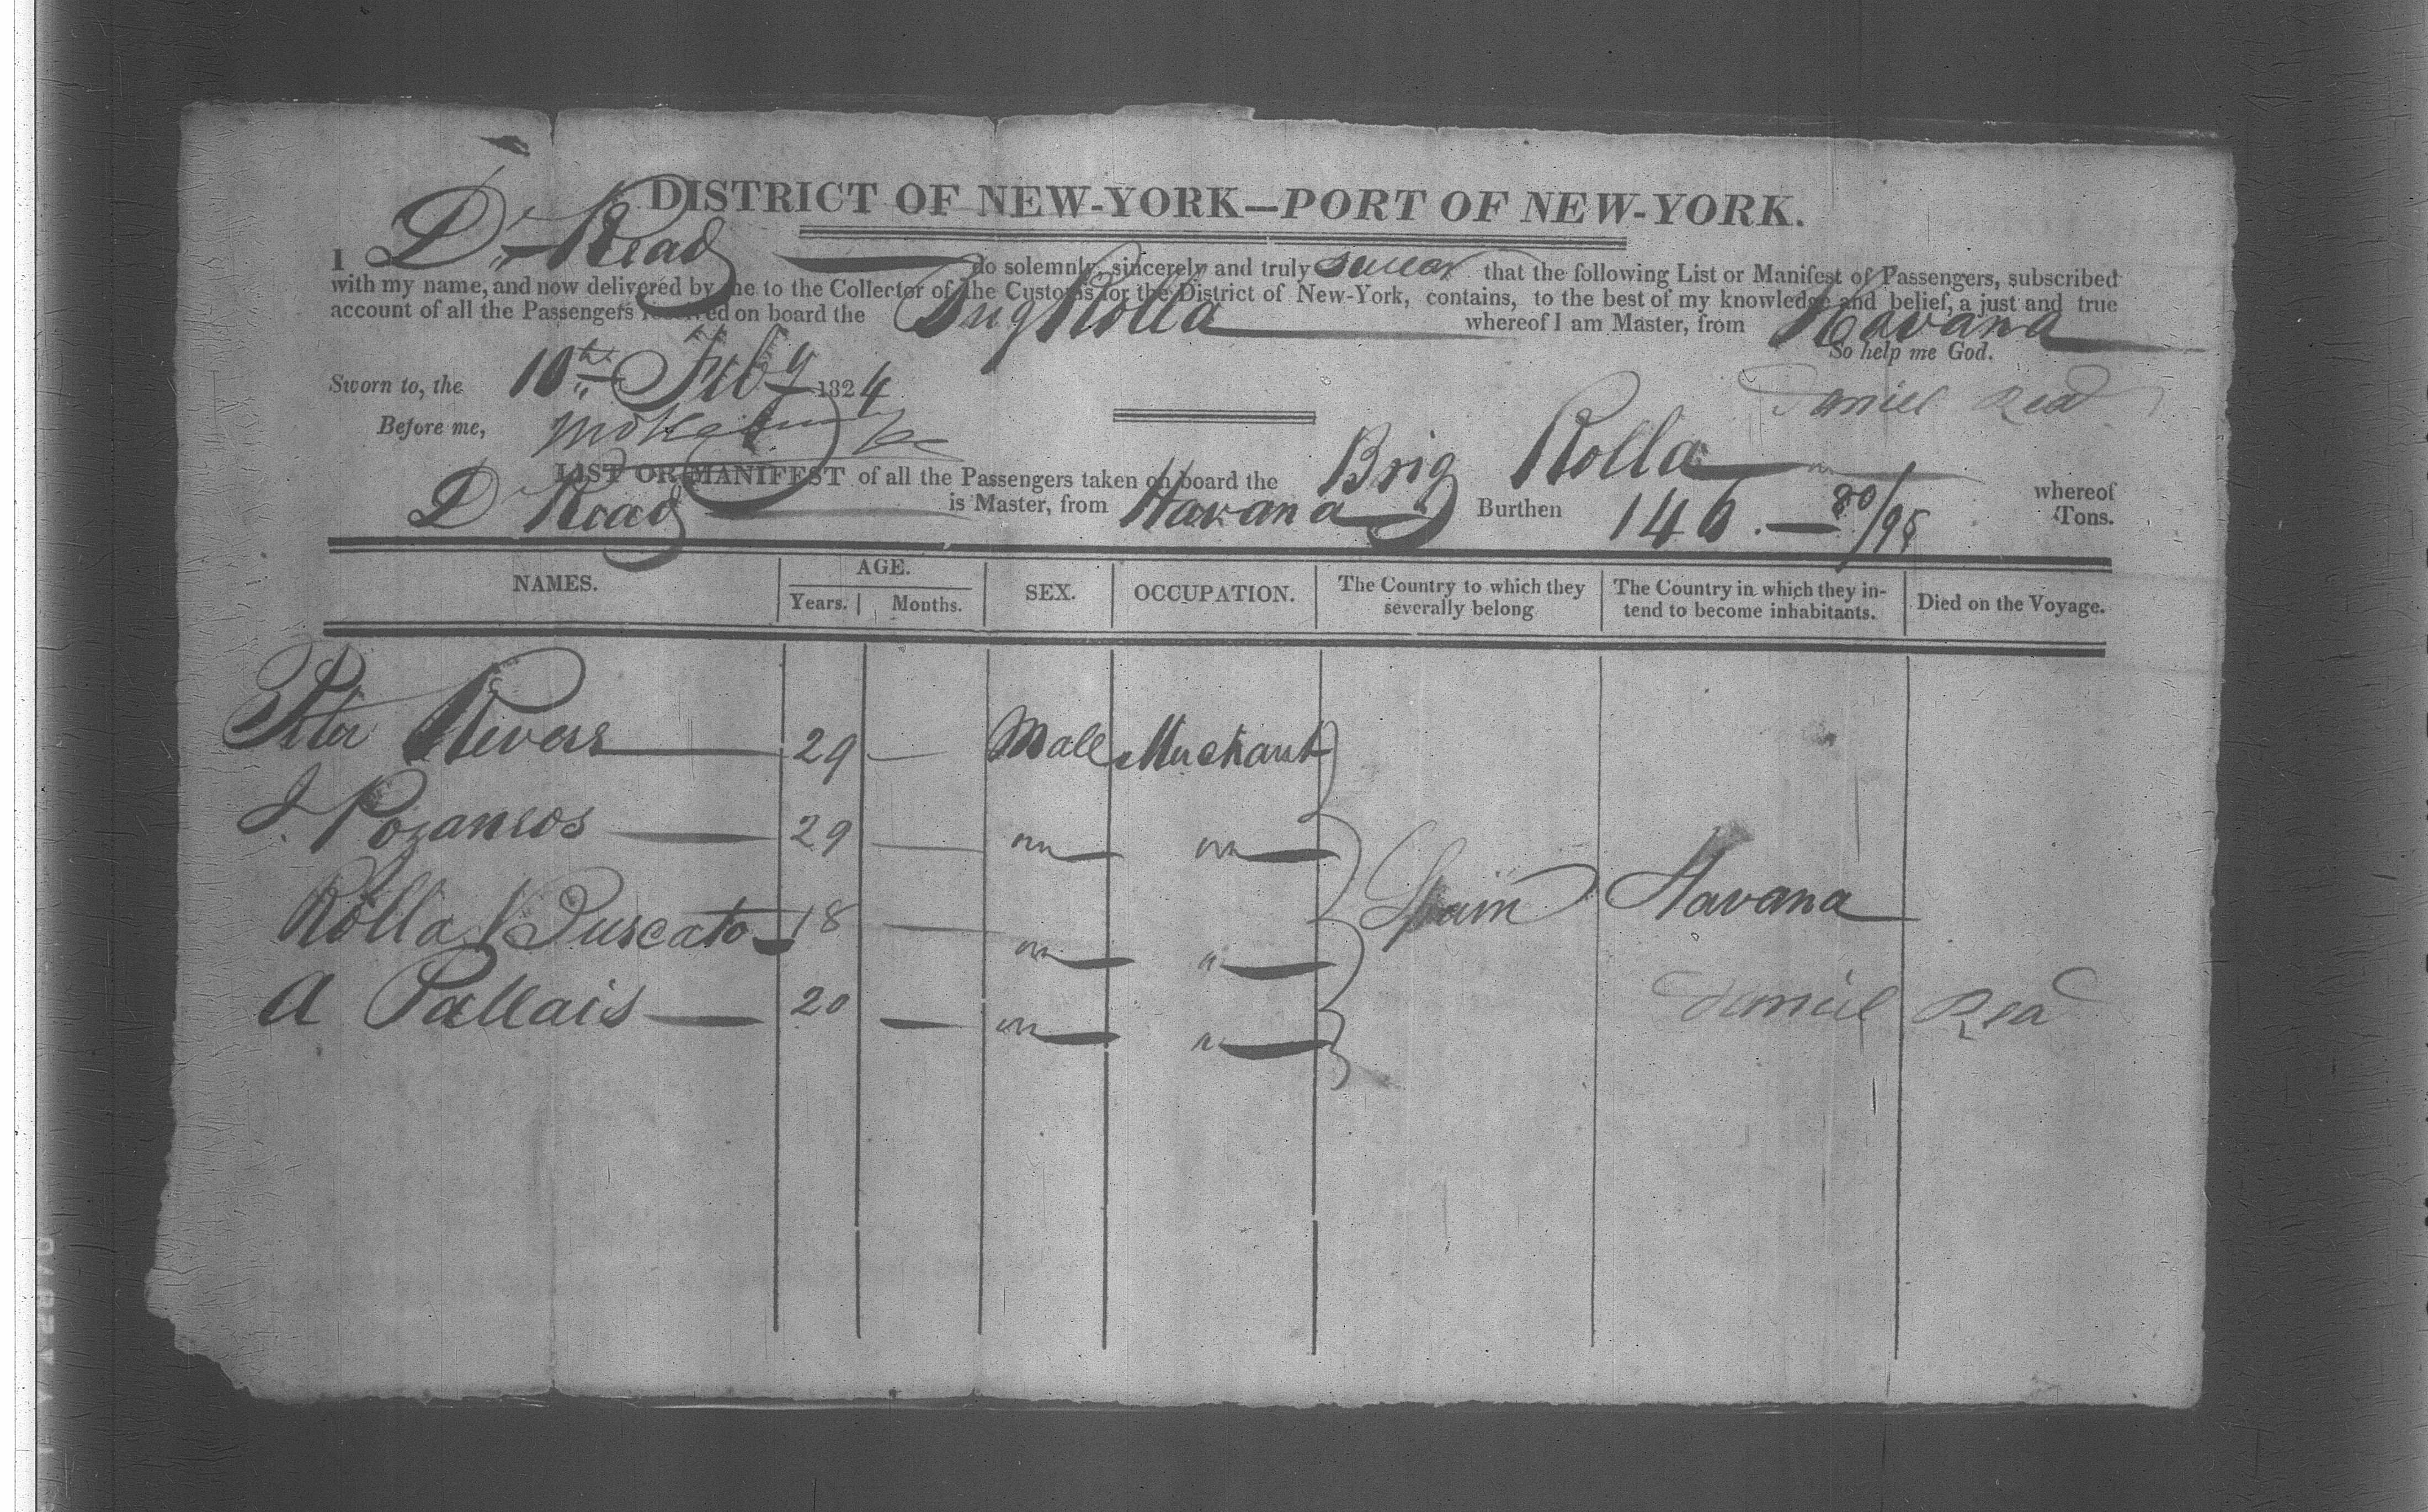 DISTRICT OF NEW-YORK—PORT OF NEW-YORK.
I D. Read do solemnly, sincerely and truly swear that the following List or Manifest of Passengers, subscribed
with my name, and now delivered by me to the Collector of the Customs for the District of New-York, contains, to the best of my knowledge and belief, a just and true
account of all the Passengers received on board the Brig Rolla whereof I am Master, from Havana
So help me God.
Sworn to, the 10th Feby 1824
Daniel Read
Before me,
LIST OR MANIFEST of all the Passengers taken on board the Brig Rolla whereof
D Read is Master, from Havana Burthen 146. — 80/95 Tons.
NAMES. AGE. SEX. OCCUPATION. The Country to which they severally belong The Country in which they in-tend to become inhabitants. Died on the Voyage.
Years. Months.
Peter Rivers — 29 — Male Merchant
J. Pozansos — 29 — " — " —
Rolla Puscato 18 — " — " — Spain Havana
A Pallais — 20 — " — " —
Daniel Read